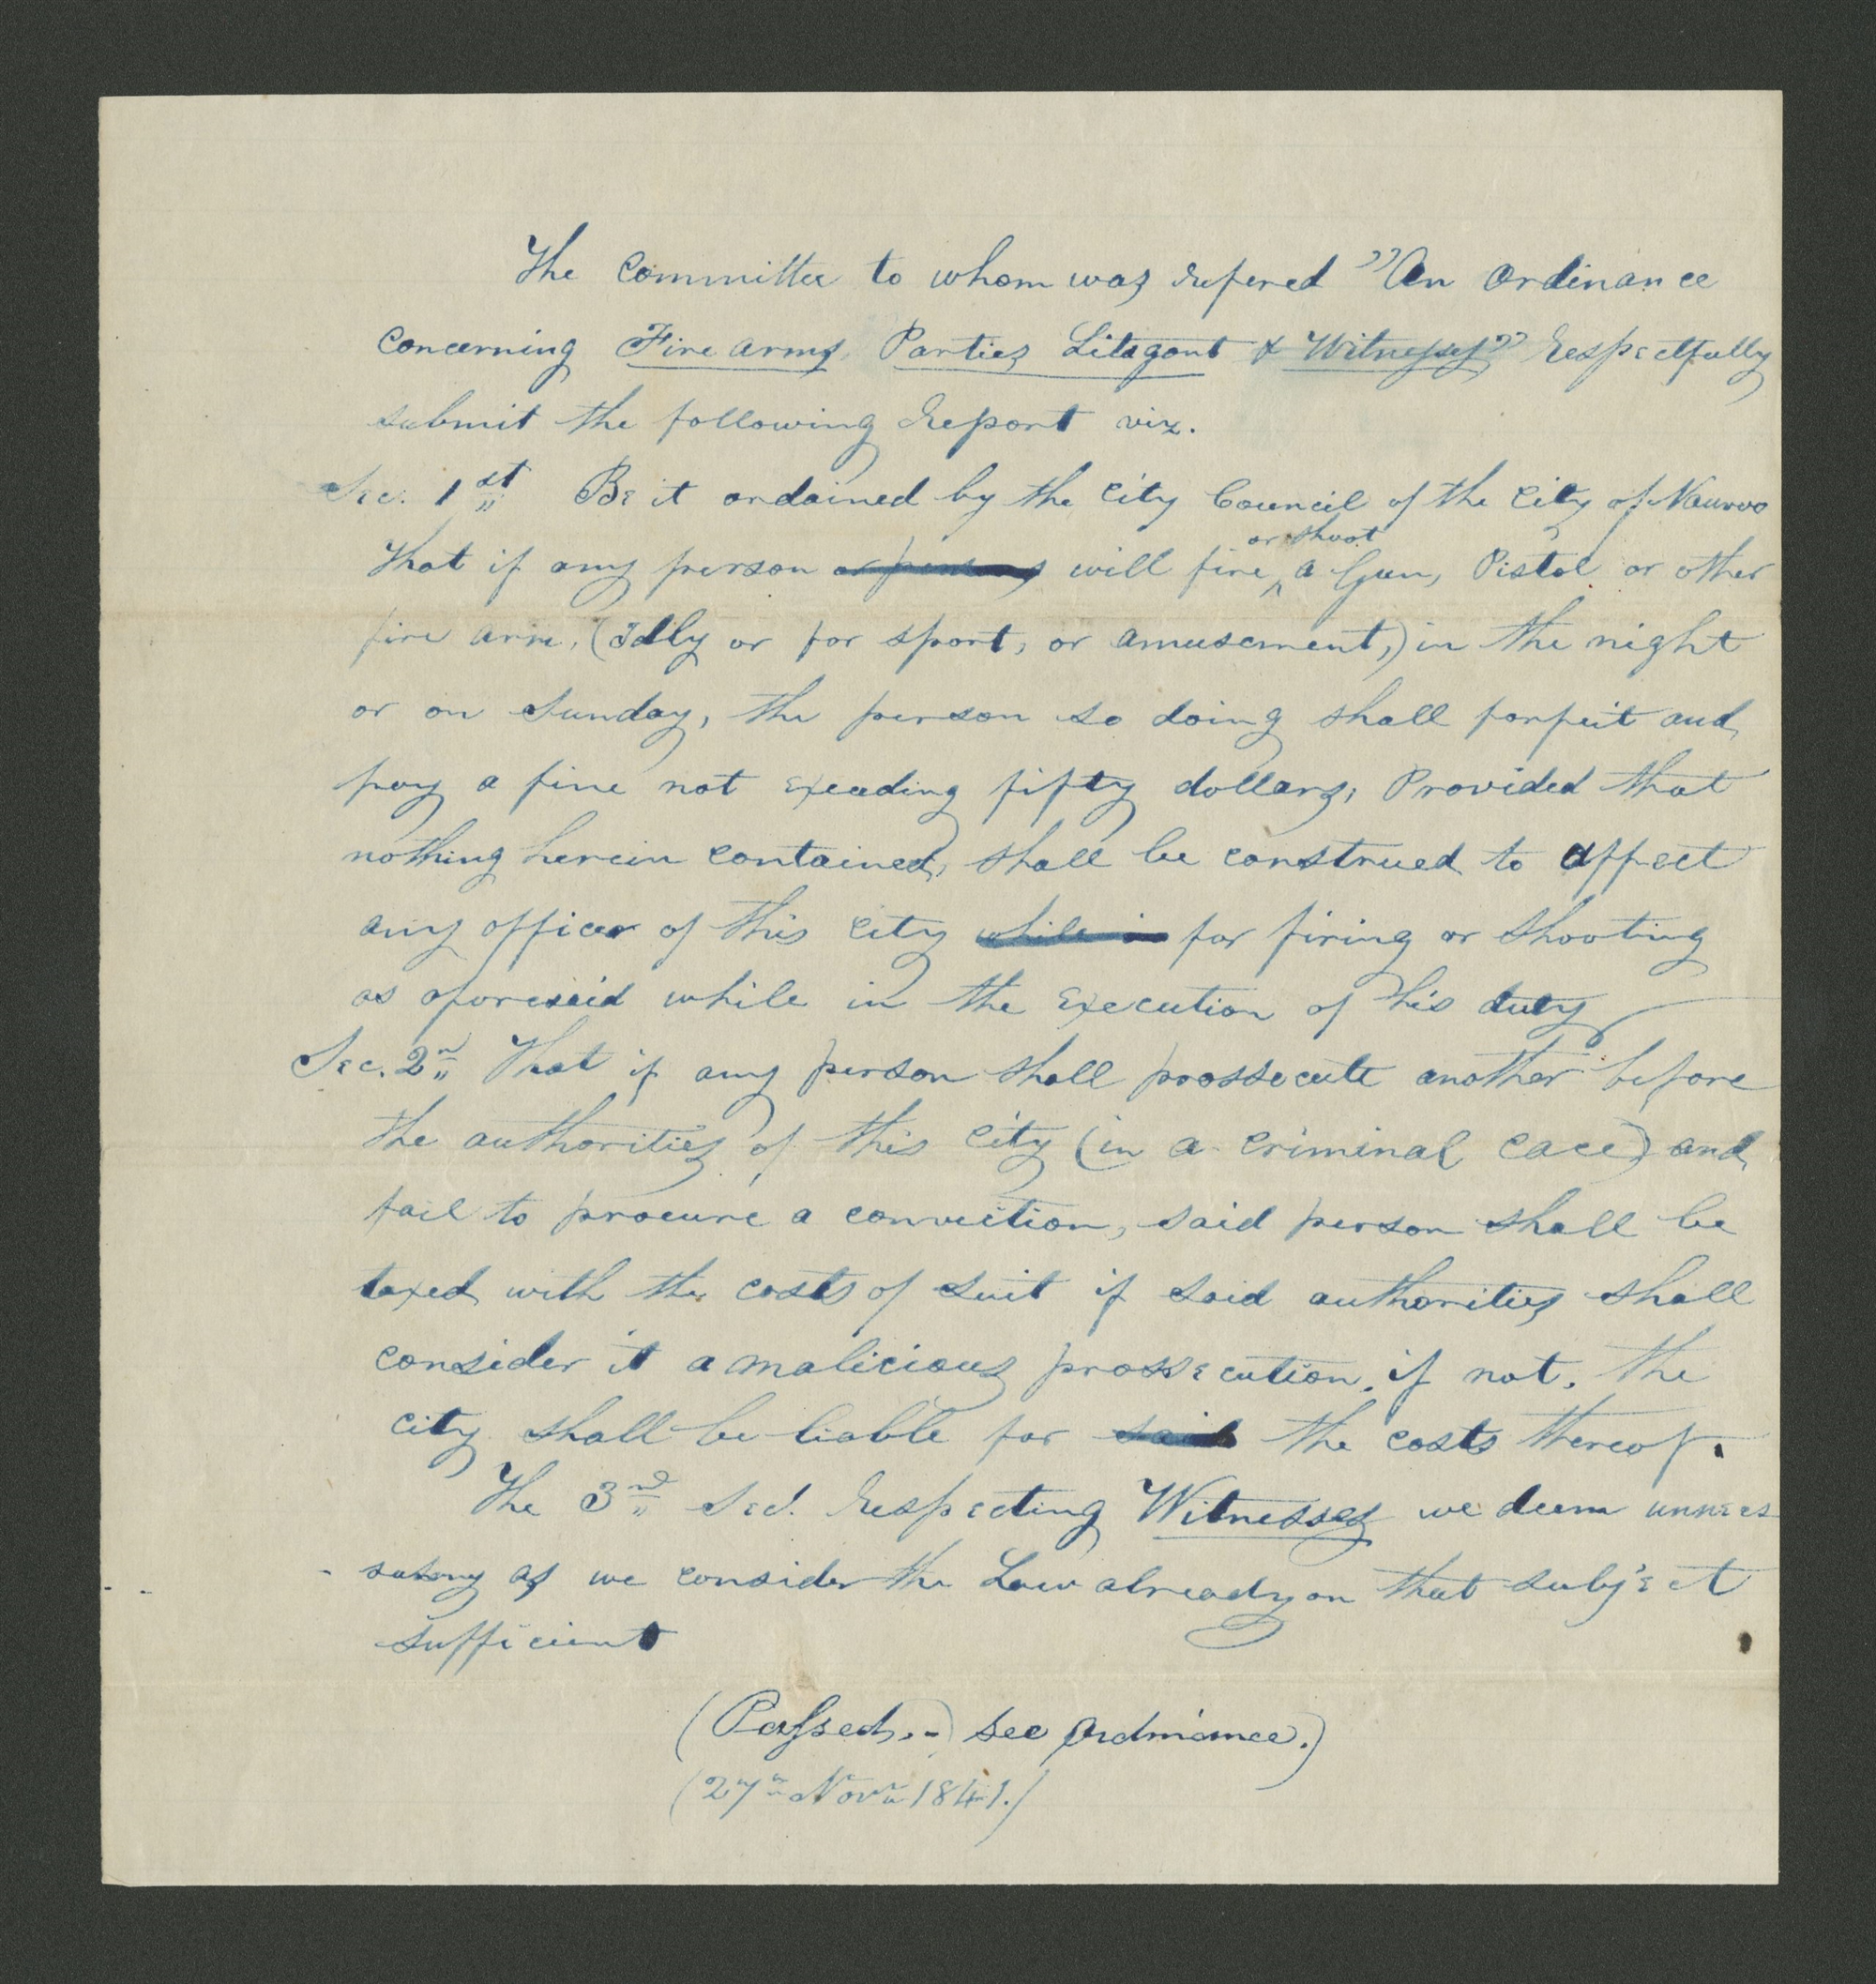 The Committee to whom was refered "An Ordinance
Concerning Fire arms, Parties Litagant & Witnesses" respectfully
submit the following report viz.
Sec. 1st Be it ordained by the City Council of the City of Nauvoo
or shoot
That if any person or persons will fire ^ a Gun, Pistol or other
fire arm, (Idly or for sport, or amusement,) in the night
or on Sunday, the person so doing shall forfeit and
pay a fine not exeeding fifty dollars, Provided that
nothing herein contained, shall be construed to affect
any officer of this City while in for firing or shooting
as aforesaid while in the execution of his duty
Sec. 2n That if any person shall prossecute another before
the authorities of this City (in a criminal cace) and
fail to procure a conviction, said person shall be
taxed with the costs of suit if said authorities shall
consider it a malicious prossecution, if not, the
city shall be liable for said the costs thereof.
The 3rd Sec. respecting Witnesses we deem unneces
-sary as we consider the Law already on that subject
sufficient
(Passed.-) see ordinance.)
(27th Nov 1841.)